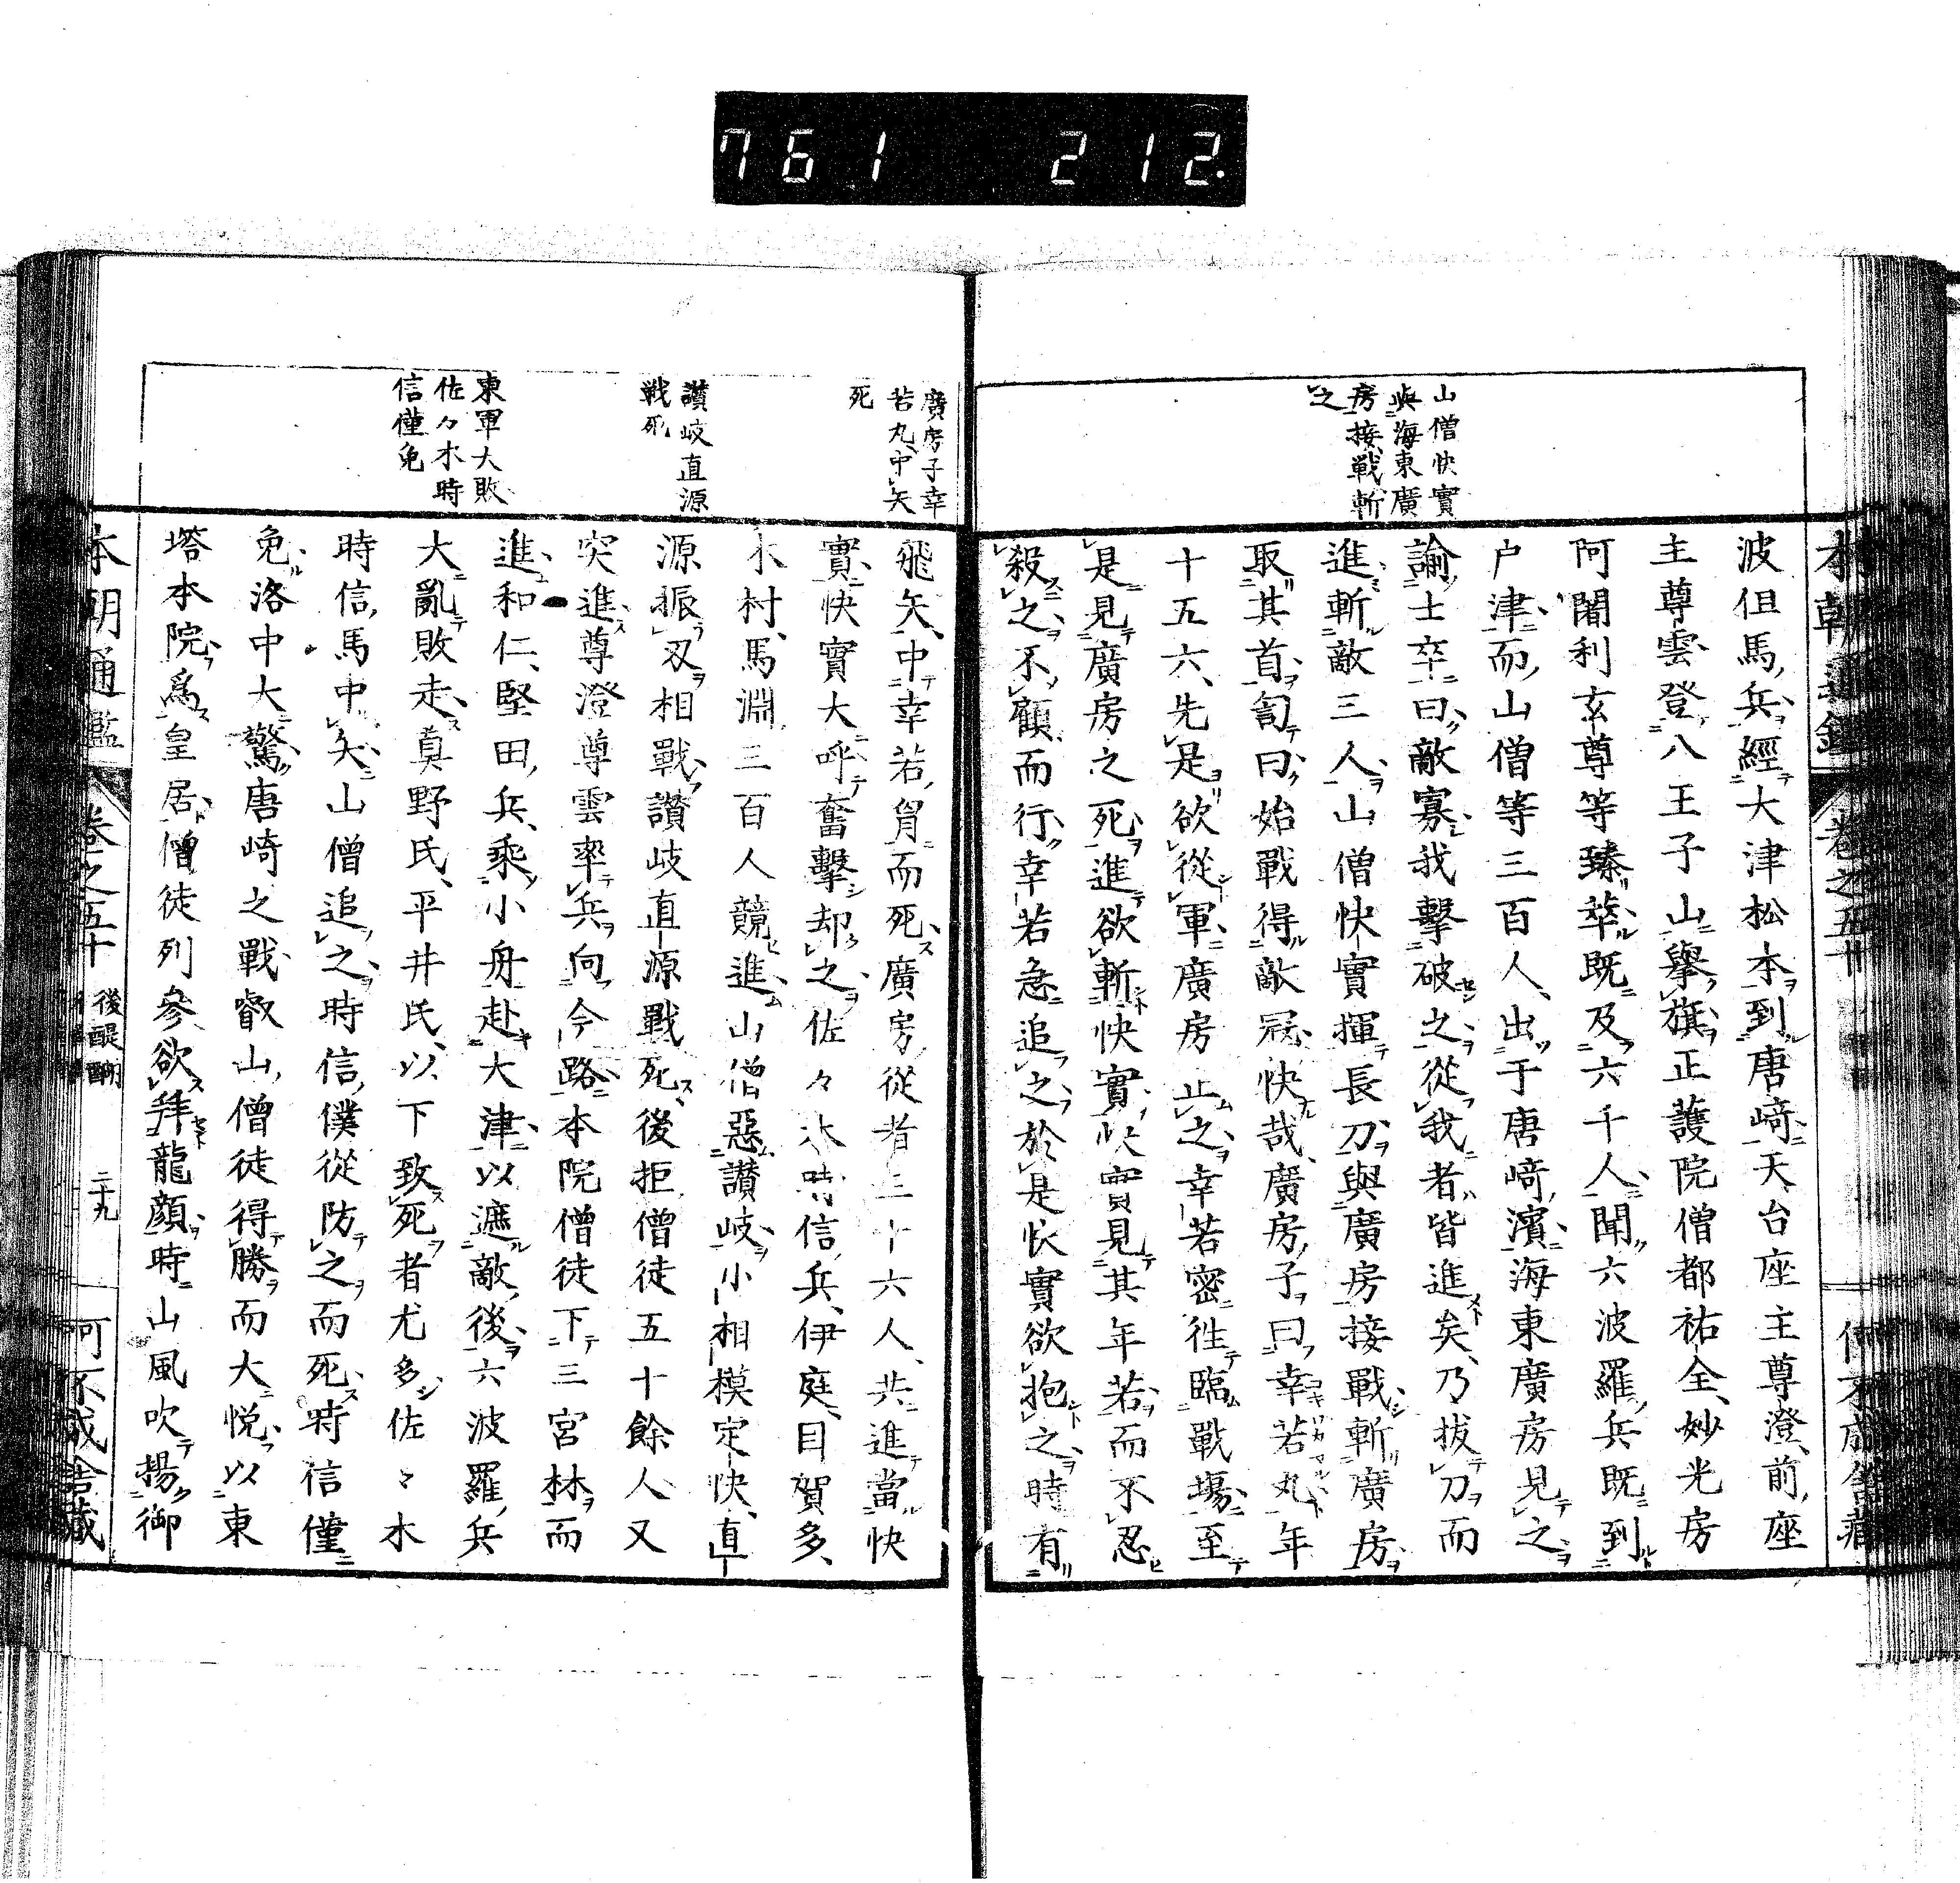 761 212.
山僧快實
與海東廣
房接戰斬
之
波但馬兵經大津松本到唐﨑天台座主尊澄前座
主尊雲登八王子山擧旗正護院僧都祐全妙光房
阿闍利玄尊等臻萃既及六千人聞六波羅兵既到
戸津而山僧等三百人出于唐﨑濱海東廣房見之
諭士卒曰敵寡我擊破之從我者皆進矣乃拔刀而
進斬敵三人山僧快實揮長刀與廣房接戰斬廣房
取其首訇曰始戰得敵冠快哉廣房子曰幸若丸年
十五六先是欲從軍廣房止之幸若密徃臨戰場至
是見廣房之死進欲斬快實快實見其年若而不忍
殺之不顧而行幸若急追之於是快實欲抱之時有
廣房子幸
若丸中矢
死
讃岐直源
戰死
東軍大敗
佐々木時
信僅免
飛矢中幸若胷而死廣房從者三十六人共進當快
實快實大呼奮擊却之佐々木時信兵伊庭目賀多
木村馬淵三百人競進山僧惡讃岐小相模定快直
源振刃相戰讃岐直源戰死後拒僧徒五十餘人又
突進尊澄尊雲率兵向今路本院僧徒下三宮林而
進和仁堅田兵乘小舟赴大津以遮敵後六波羅兵
大亂敗走眞野氏平井氏以下致死者尤多佐々木
時信馬中矢山僧追之時信僕從防之而死時信僅
免洛中大驚唐崎之戰叡山僧徒得勝而大悅以東
塔本院爲皇居僧徒列參欲拜龍顔時山風吹揚御
本朝通鑑 卷之五十 後醍醐 二十九